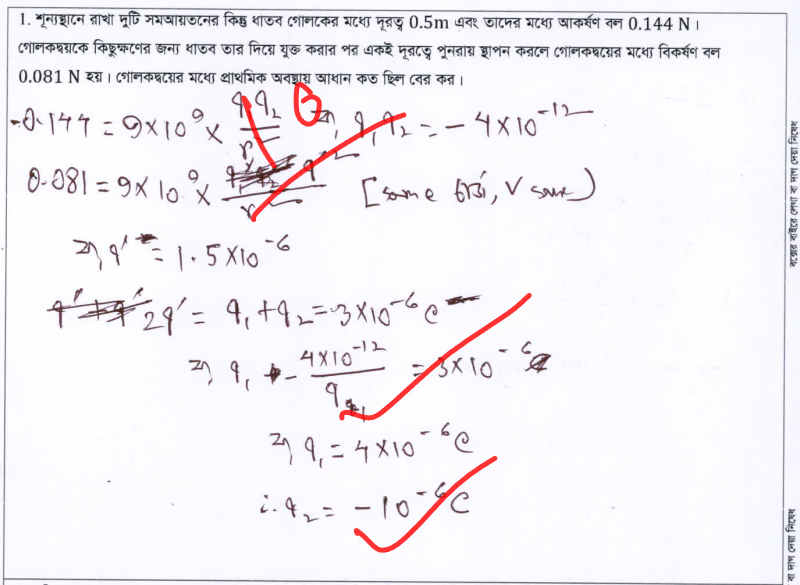 1. শূন্যস্থানে রাখা দুটি সমআয়তনের কিন্তু ধাতব গোলকের মধ্যে দূরত্ব 0.5m এবং তাদের মধ্যে আকর্ষণ বল 0.144 N ।
গোলকদ্বয়কে কিছুক্ষণের জন্য ধাতব তার দিয়ে যুক্ত করার পর একই দূরত্বে পুনরায় স্থাপন করলে গোলকদ্বয়ের মধ্যে বিকর্ষণ বল
0.081 N হয়। গোলকদ্বয়ের মধ্যে প্রাথমিক অবস্থায় আধান কত ছিল বের কর।
-0.144 = 9×10⁹ × q₁q₂/r² ⇒ q₁q₂ = -4×10⁻¹²
0.081 = 9×10⁹ × q'²/r² [same চার্জ, V same)
⇒ q' = 1.5×10⁻⁶
2q' = q₁+q₂ = 3×10⁻⁶ C
⇒ q₁ - 4×10⁻¹²/q₁ = 3×10⁻⁶
⇒ q₁ = 4×10⁻⁶ C
∴ q₂ = -10⁻⁶ C
বক্সের বাইরে লেখা বা দাগ দেয়া নিষেধ
বা দাগ দেয়া নিষেধ